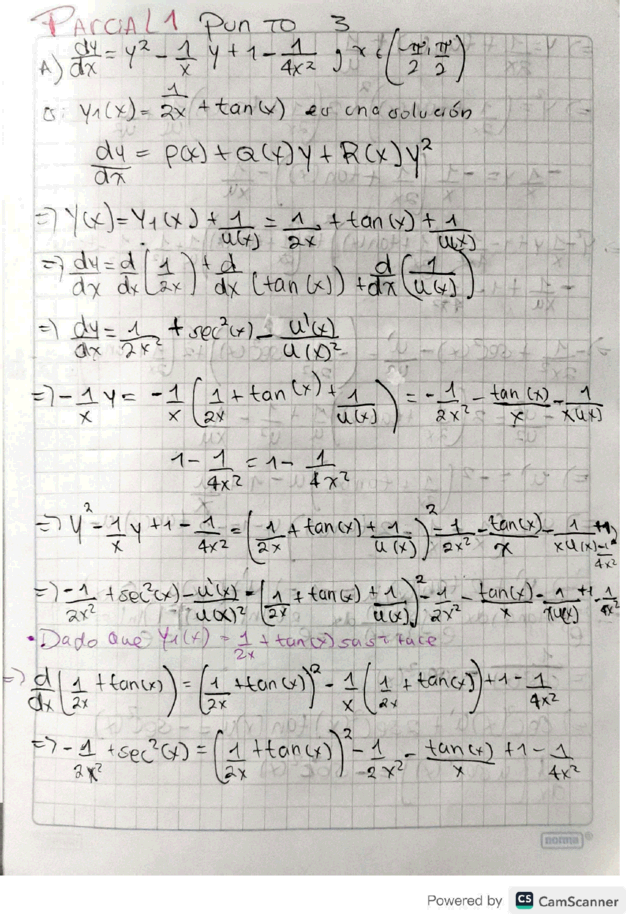 PARCIAL 1 PUNTO 3
A) dy/dx = y² - 1/x y + 1 - 1/4x² y x ∈ (-π/2, π/2)
si y₁(x) = 1/2x + tan(x) es una solución
dy/dx = P(x) + Q(x)y + R(x)y²
=> Y(x) = Y₁(x) + 1/u(x) = 1/2x + tan(x) + 1/u(x)
=> dy/dx = d/dx (1/2x) + d/dx (tan(x)) + d/dx (1/u(x))
=> dy/dx = 1/2x² + sec²(x) - u'(x)/u(x)²
=> -1/x y = -1/x (1/2x + tan(x) + 1/u(x)) = -1/2x² - tan(x)/x - 1/xu(x)
1 - 1/4x² = 1 - 1/4x²
=> y² - 1/x y + 1 - 1/4x² = (1/2x + tan(x) + 1/u(x))² - 1/2x² - tan(x)/x - 1/xu(x) + 1 - 1/4x²
=> -1/2x² + sec²(x) - u'(x)/u(x)² = (1/2x + tan(x) + 1/u(x))² - 1/2x² - tan(x)/x - 1/xu(x) + 1 - 1/4x²
• Dado que y₁(x) = 1/2x + tan(x) satisface
=> d/dx (1/2x + tan(x)) = (1/2x + tan(x))² - 1/x (1/2x + tan(x)) + 1 - 1/4x²
=> -1/2x² + sec²(x) = (1/2x + tan(x))² - 1/2x² - tan(x)/x + 1 - 1/4x²
norma
Powered by CS CamScanner